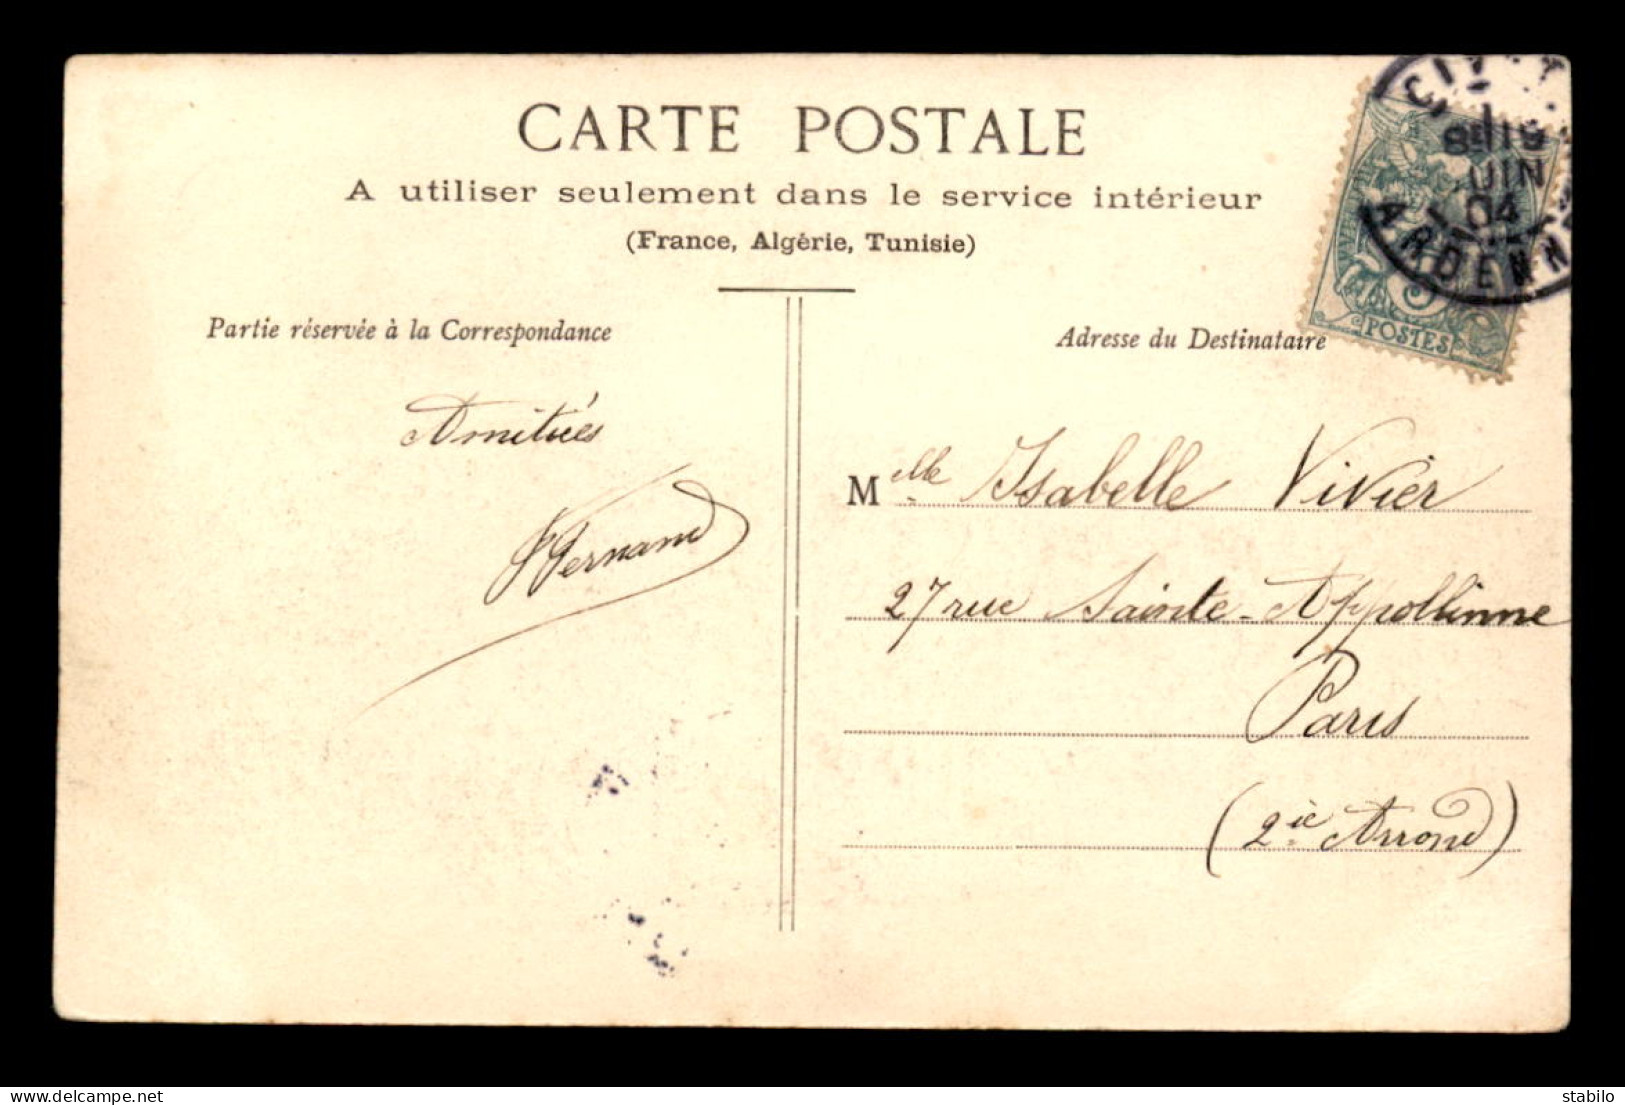 CARTE POSTALE
A utiliser seulement dans le service intérieur
(France, Algérie, Tunisie)
Partie réservée à la Correspondance
Adresse du Destinataire
POSTES
UIN
04
ARDENN
Amitiés
Fernand
Melle Isabelle Vivier
27 rue Sainte-Appollinne
Paris
(2ie Arrond)
delcampe.net
stabilo